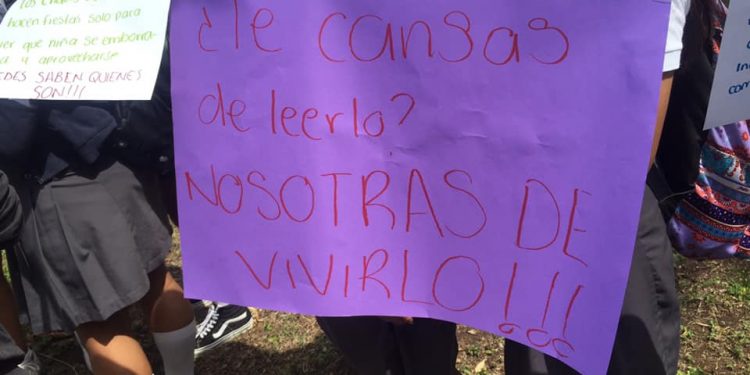 hacen fiestas solo para
er que niña se emborra
a y aprovecharse
EDES SABEN QUIENES
SON!!!
¿Te cansas
de leerlo?
NOSOTRAS DE
VIVIRLO!!!